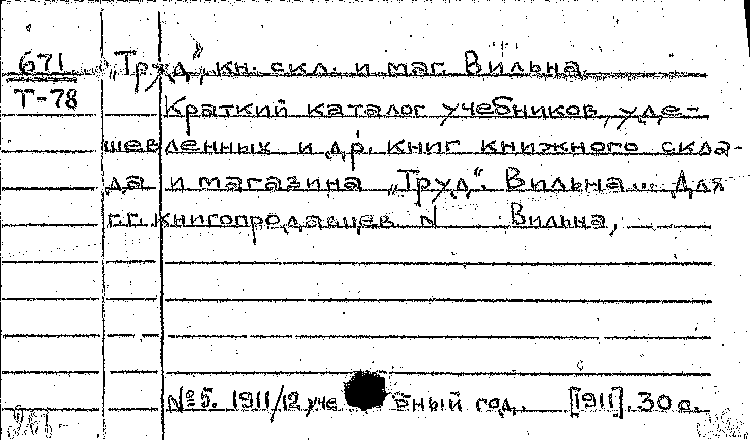 671 „Труд", кн. скл. и маг. Вильна
Т-78
Краткий каталог учебников, уде-
шевленных и др. книг книжного скла-
да и магазина „Труд". Вильна... Для
г.г. книгопродавцев N Вильна,
№5. 1911/12 уче бный год. [1911]. 30 с.